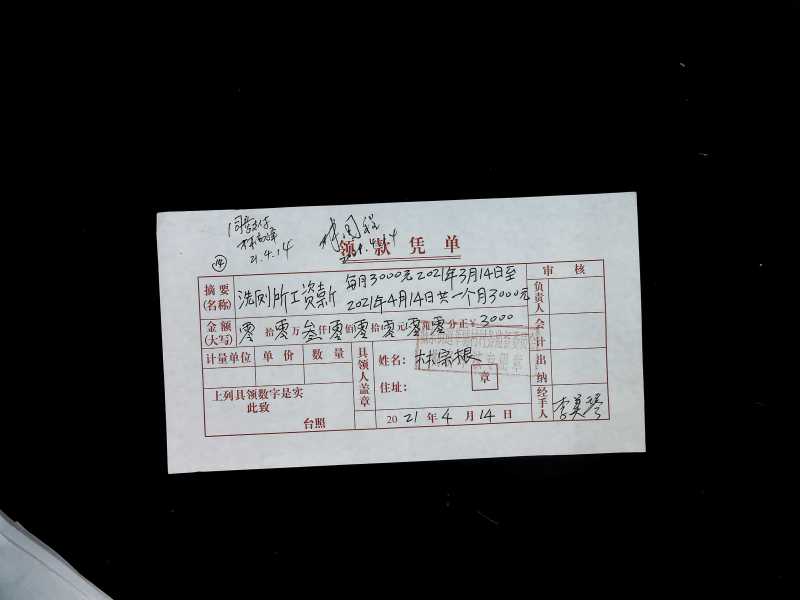 同意支付
21.4.14
林国程
2021.4.14
⑭
领款凭单
摘要(名称) 洗厕所工资薪 每月3000元2021年3月14日至
2021年4月14日共一个月3000元
审核
负责人
金额(大写) 零拾零万叁仟零佰零拾零元零角零分正￥3000
会计
计量单位 单价 数量
具领人盖章
姓名: 林宗根
章
住址:
出纳
上列具领数字是实
此致
台照
2021年4月14日
经手人